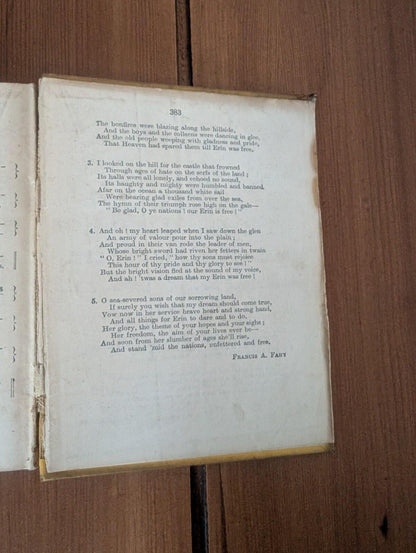 383
The bonfires were blazing along the hillside,
And the boys and the colleens were dancing in glee,
And the old people weeping with gladness and pride,
That Heaven had spared them till Erin was free.
3. I looked on the hill for the castle that frowned
Through ages of hate on the serfs of the land;
Its halls were all lonely, and echoed no sound,
Its haughty and mighty were humbled and banned.
Afar on the ocean a thousand white sail
Were bearing glad exiles from over the sea,
The hymn of their triumph rose high on the gale—
"Be glad, O ye nations! our Erin is free!"
4. And oh! my heart leaped when I saw down the glen
An army of valour pour into the plain;
And proud in their van rode the leader of men,
Whose bright sword had riven her fetters in twain
"O, Erin!" I cried, "how thy sons must rejoice
This hour of thy pride and thy glory to see!"
But the bright vision fled at the sound of my voice,
And ah! 'twas a dream that my Erin was free!
5. O sea-severed sons of our sorrowing land,
If surely you wish that my dream should come true,
Vow now in her service brave heart and strong hand,
And all things for Erin to dare and to do.
Her glory, the theme of your hopes and your sighs;
Her freedom, the aim of your lives ever be—
And soon from her slumber of ages she'll rise,
And stand 'mid the nations, unfettered and free,
FRANCIS A. FAHY